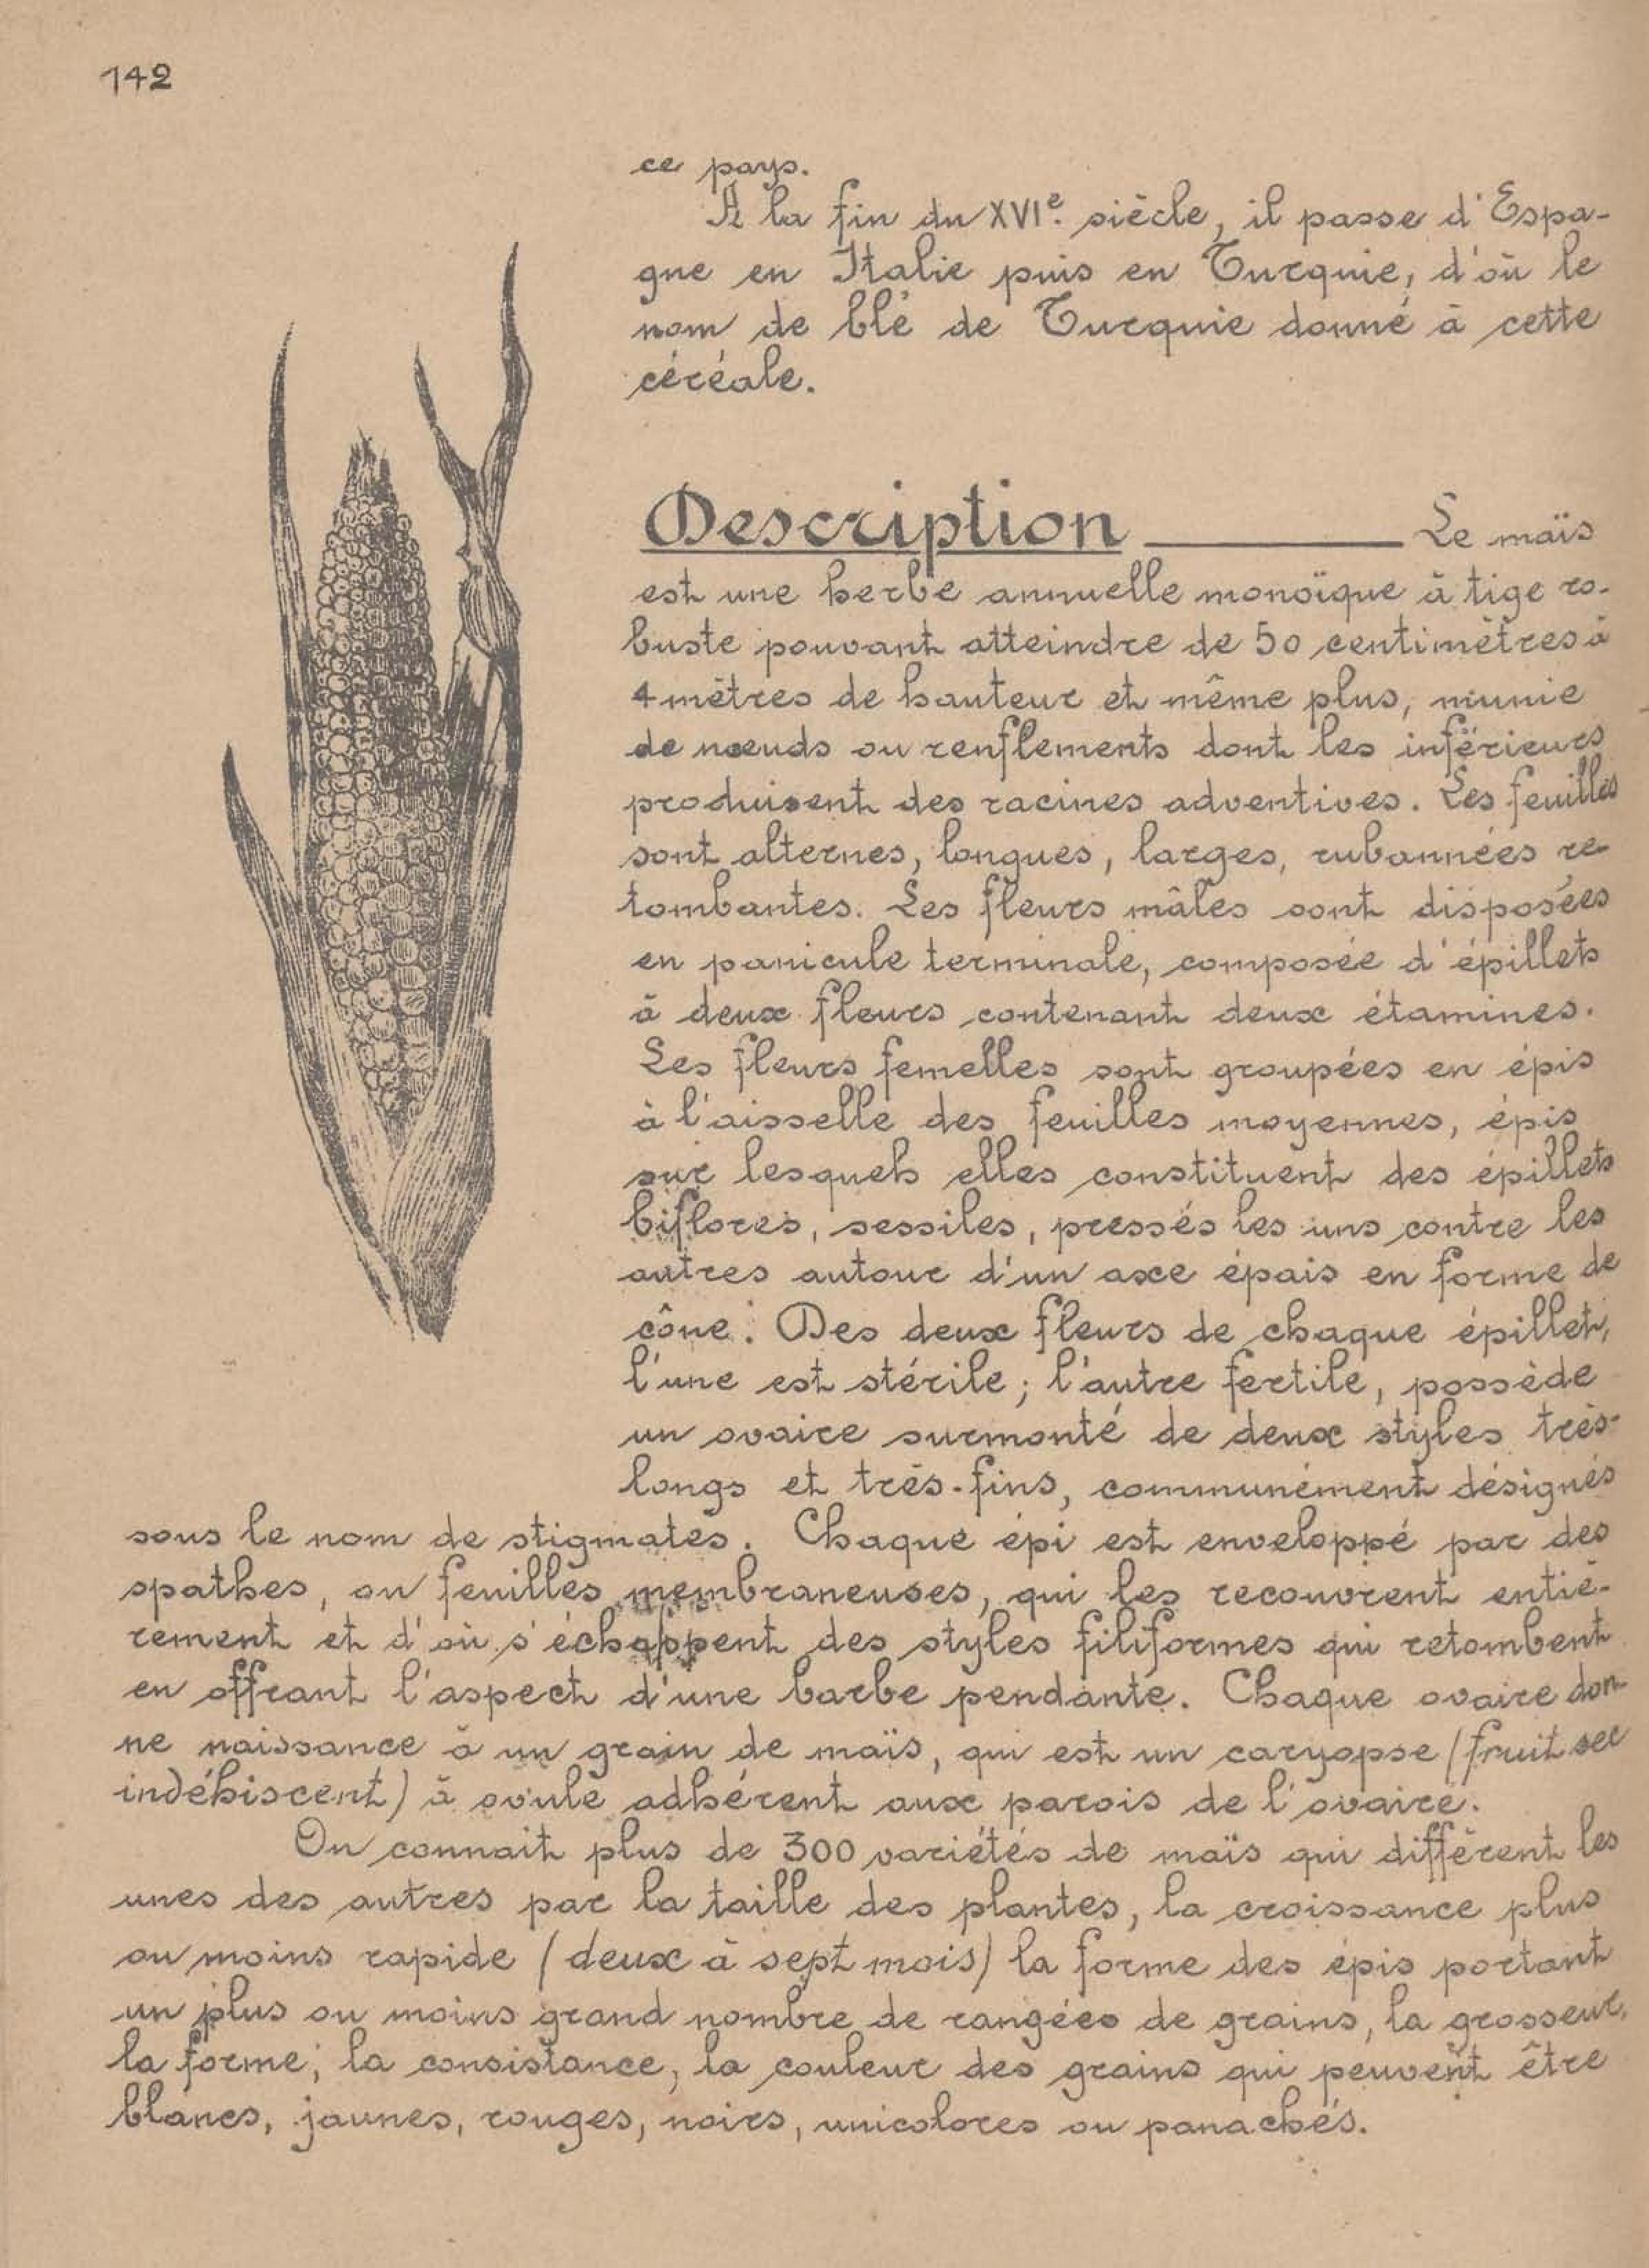 142
ce pays.
A la fin du XVIe. siècle, il passe d'Espa-
gne en Italie puis en Turquie, d'où le
nom de blé de Turquie donné à cette
céréale.
Description ——— Le maïs
est une herbe annuelle monoïque à tige ro-
buste pouvant atteindre de 50 centimètres à
4 mètres de hauteur et même plus, munie
de nœuds ou renflements dont les inférieurs
produisent des racines adventives. Les feuilles
sont alternes, longues, larges, rubannées re-
tombantes. Les fleurs mâles sont disposées
en panicule terminale, composée d'épillets
à deux fleurs contenant deux étamines.
Les fleurs femelles sont groupées en épis
à l'aisselle des feuilles moyennes, épis
sur lesquels elles constituent des épillets
biflores, sessiles, pressés les uns contre les
autres autour d'un axe épais en forme de
cône. Des deux fleurs de chaque épillet,
l'une est stérile; l'autre fertile, possède
un ovaire surmonté de deux styles très-
longs et très-fins, communément désignés
sous le nom de stigmates. Chaque épi est enveloppé par des
spathes, ou feuilles membraneuses, qui les recouvrent entiè-
rement et d'où s'échappent des styles filiformes qui retombent
en offrant l'aspect d'une barbe pendante. Chaque ovaire don-
ne naissance à un grain de maïs, qui est un caryopse (fruit sec
indéhiscent) à ovule adhérent aux parois de l'ovaire.
On connait plus de 300 variétés de maïs qui diffèrent les
unes des autres par la taille des plantes, la croissance plus
ou moins rapide (deux à sept mois) la forme des épis portant
un plus ou moins grand nombre de rangées de grains, la grosseur,
la forme, la consistance, la couleur des grains qui peuvent être
blancs, jaunes, rouges, noirs, unicolores ou panachés.